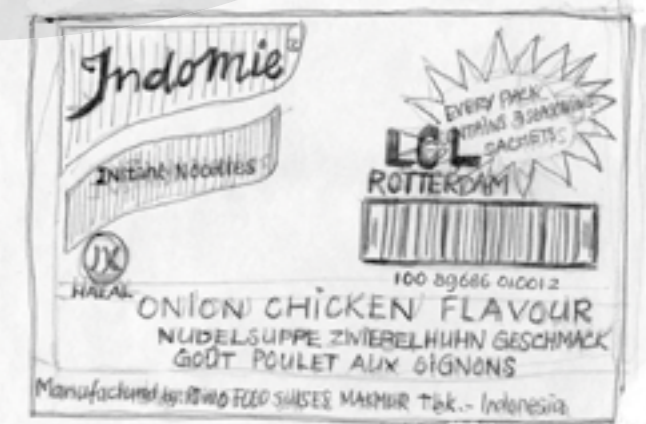 Indomie
INstant Noodles
EVERY PACK
CONTAINS 3 SEASONING
SACHETS
LCL
ROTTERDAM
HALAL
100 89686 010012
ONION CHICKEN FLAVOUR
NUDELSUPPE ZWIEBELHUHN GESCHMACK
GOÛT POULET AUX OIGNONS
Manufactured by: FOOD SUKSES MAKMUR Tbk. - Indonesia